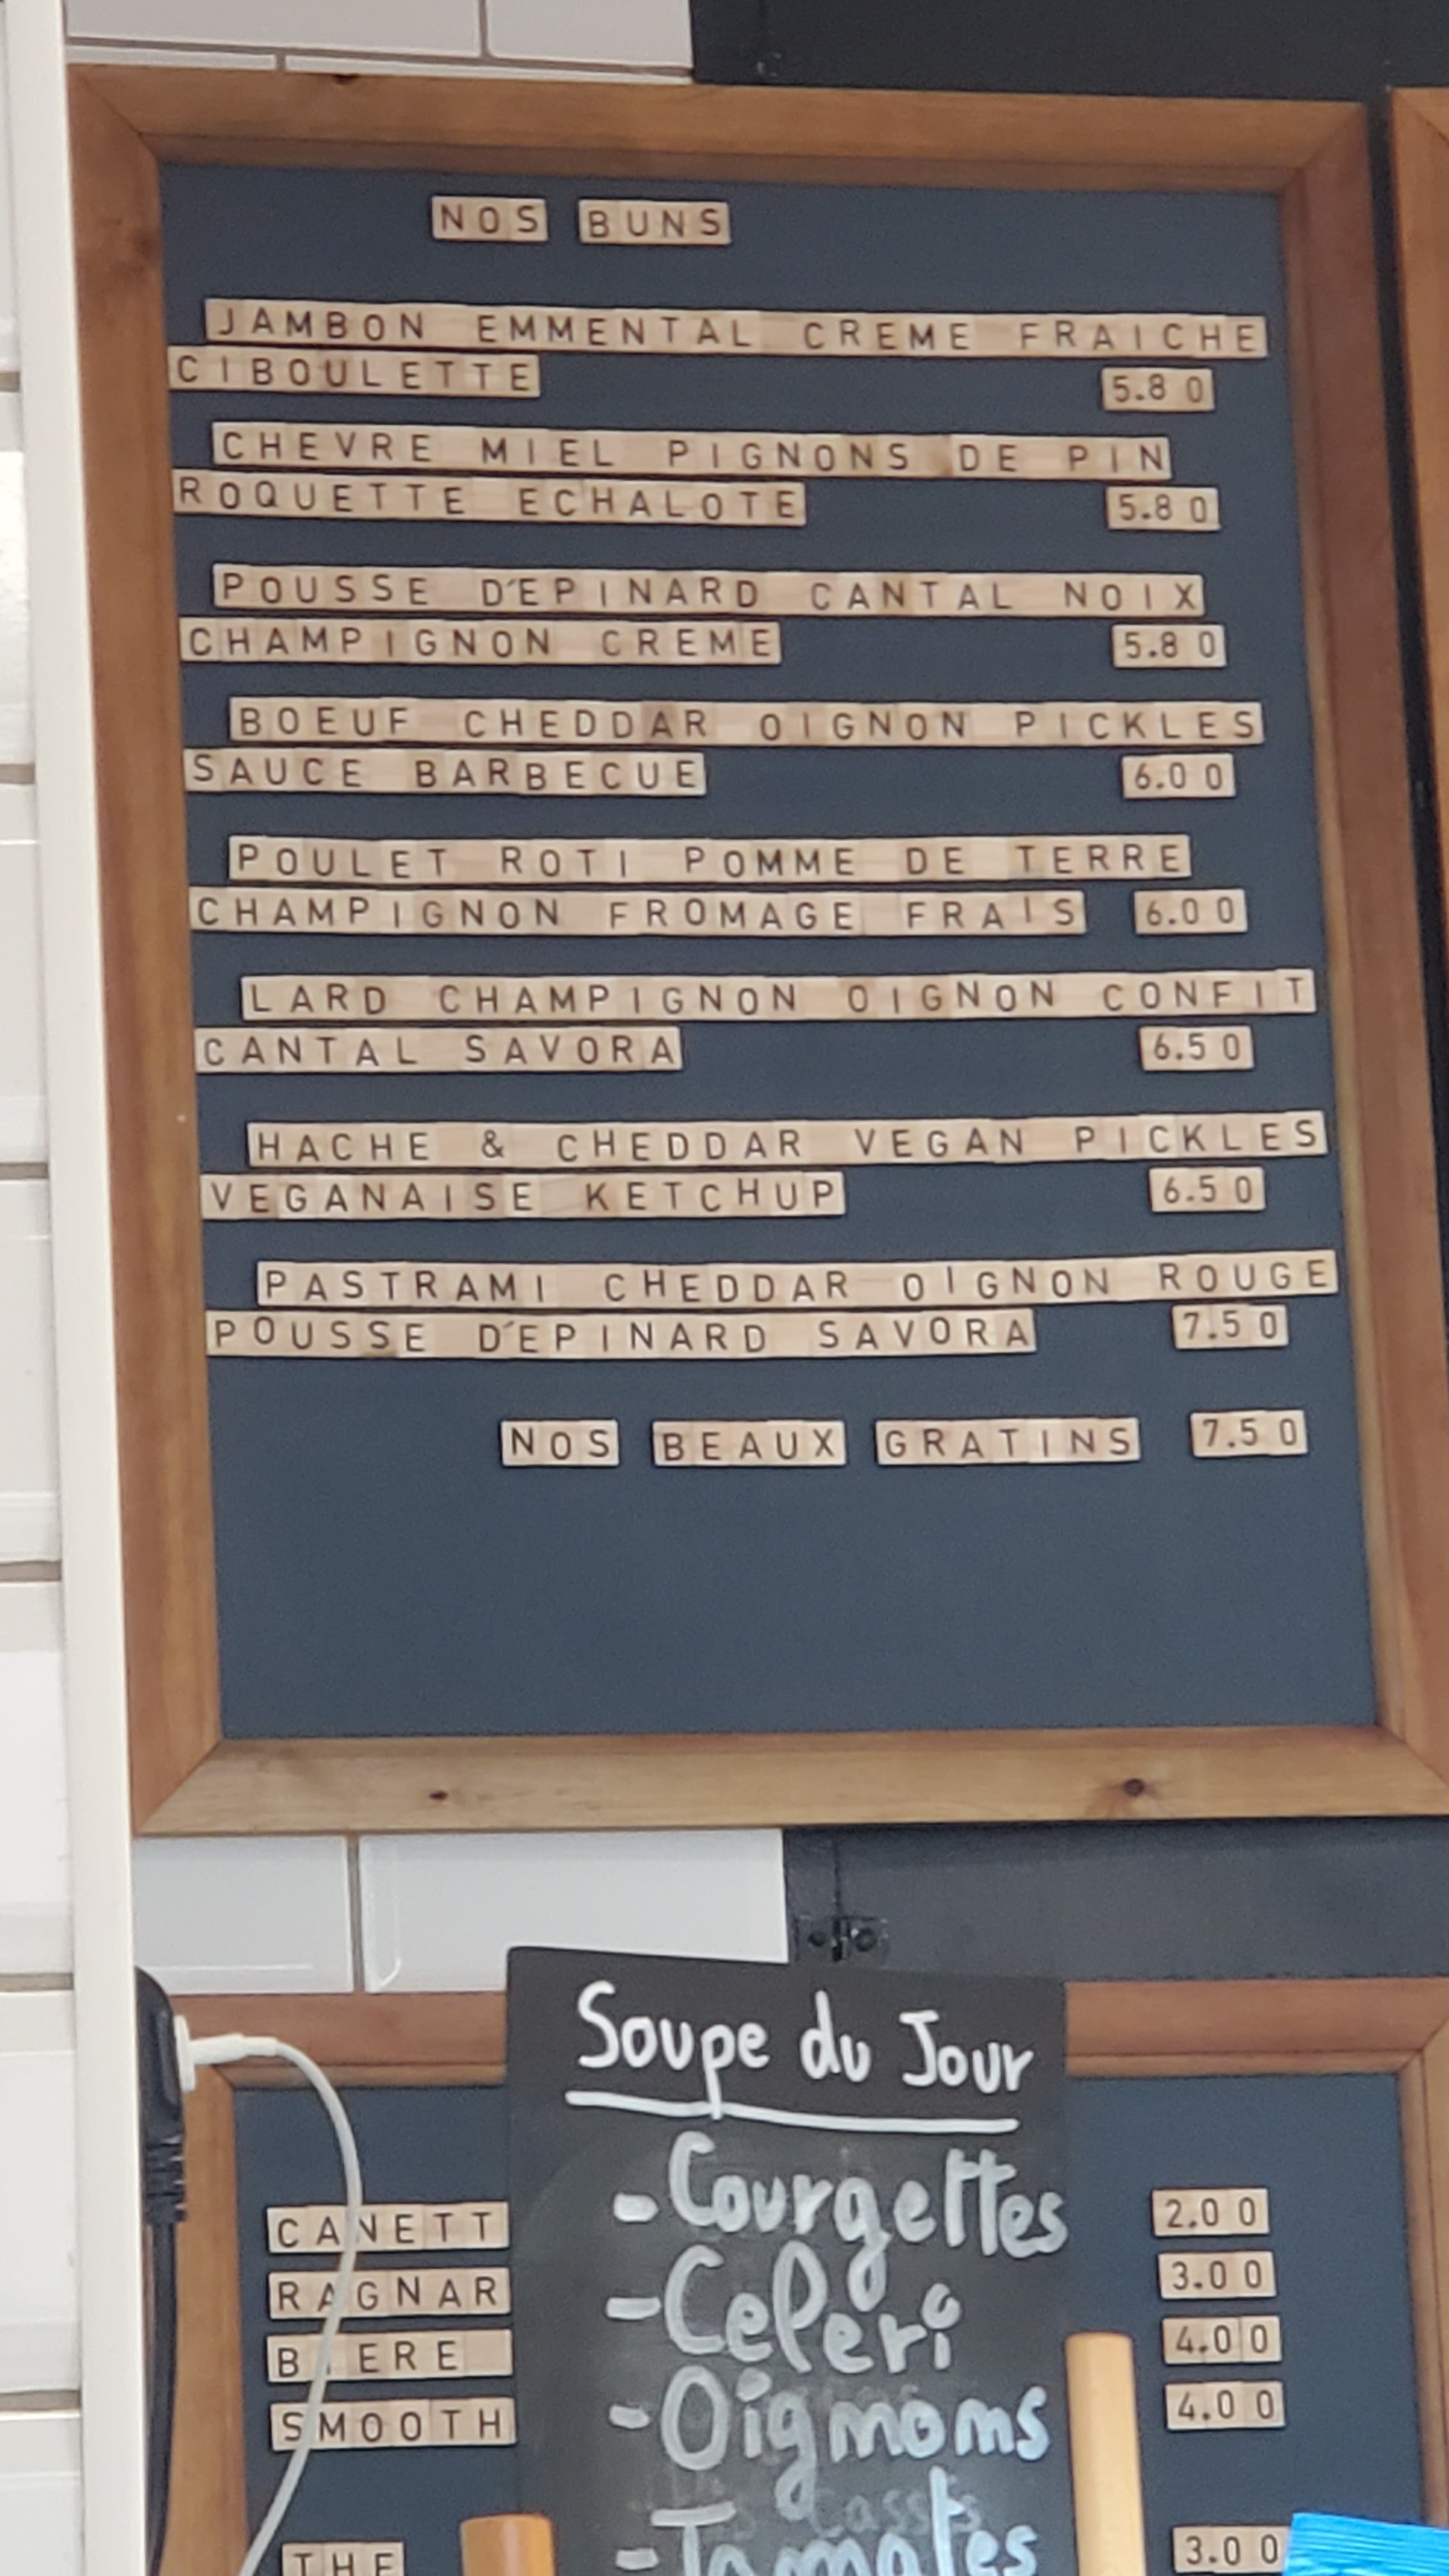 NOS BUNS
JAMBON EMMENTAL CREME FRAICHE
CIBOULETTE 5.80
CHEVRE MIEL PIGNONS DE PIN
ROQUETTE ECHALOTE 5.80
POUSSE D'EPINARD CANTAL NOIX
CHAMPIGNON CREME 5.80
BOEUF CHEDDAR OIGNON PICKLES
SAUCE BARBECUE 6.00
POULET ROTI POMME DE TERRE
CHAMPIGNON FROMAGE FRAIS 6.00
LARD CHAMPIGNON OIGNON CONFIT
CANTAL SAVORA 6.50
HACHE & CHEDDAR VEGAN PICKLES
VEGANAISE KETCHUP 6.50
PASTRAMI CHEDDAR OIGNON ROUGE
POUSSE D'EPINARD SAVORA 7.50
NOS BEAUX GRATINS 7.50
Soupe du Jour
- Courgettes
- Celeri
- Oignons
- Tomates
CANETT 2.00
RAGNAR 3.00
BIERE 4.00
SMOOTH 4.00
THE 3.00